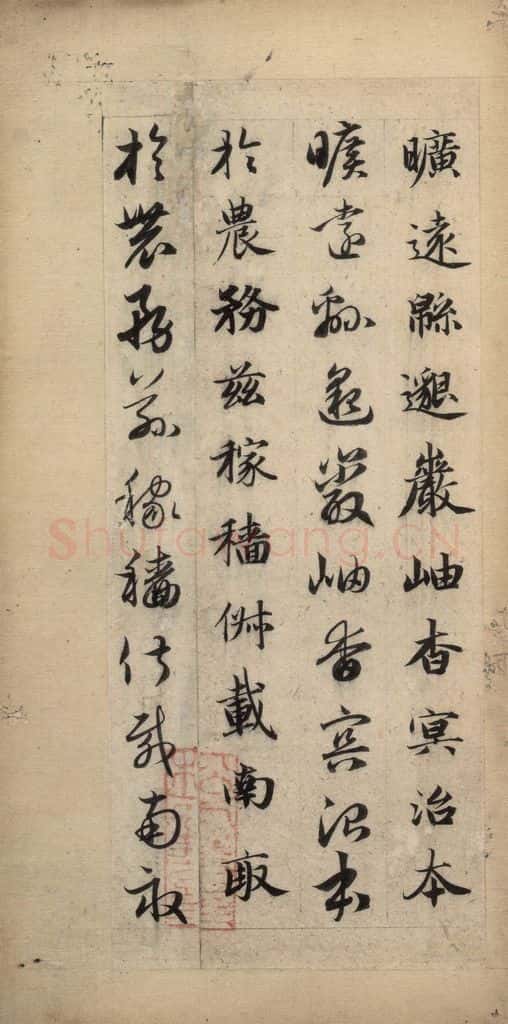 曠遠緜邈巖岫杳冥治本
曠遠緜邈巖岫杳冥治本
於農務茲稼穡俶載南畝
於農務茲稼穡俶載南畝
Shufawang.CN